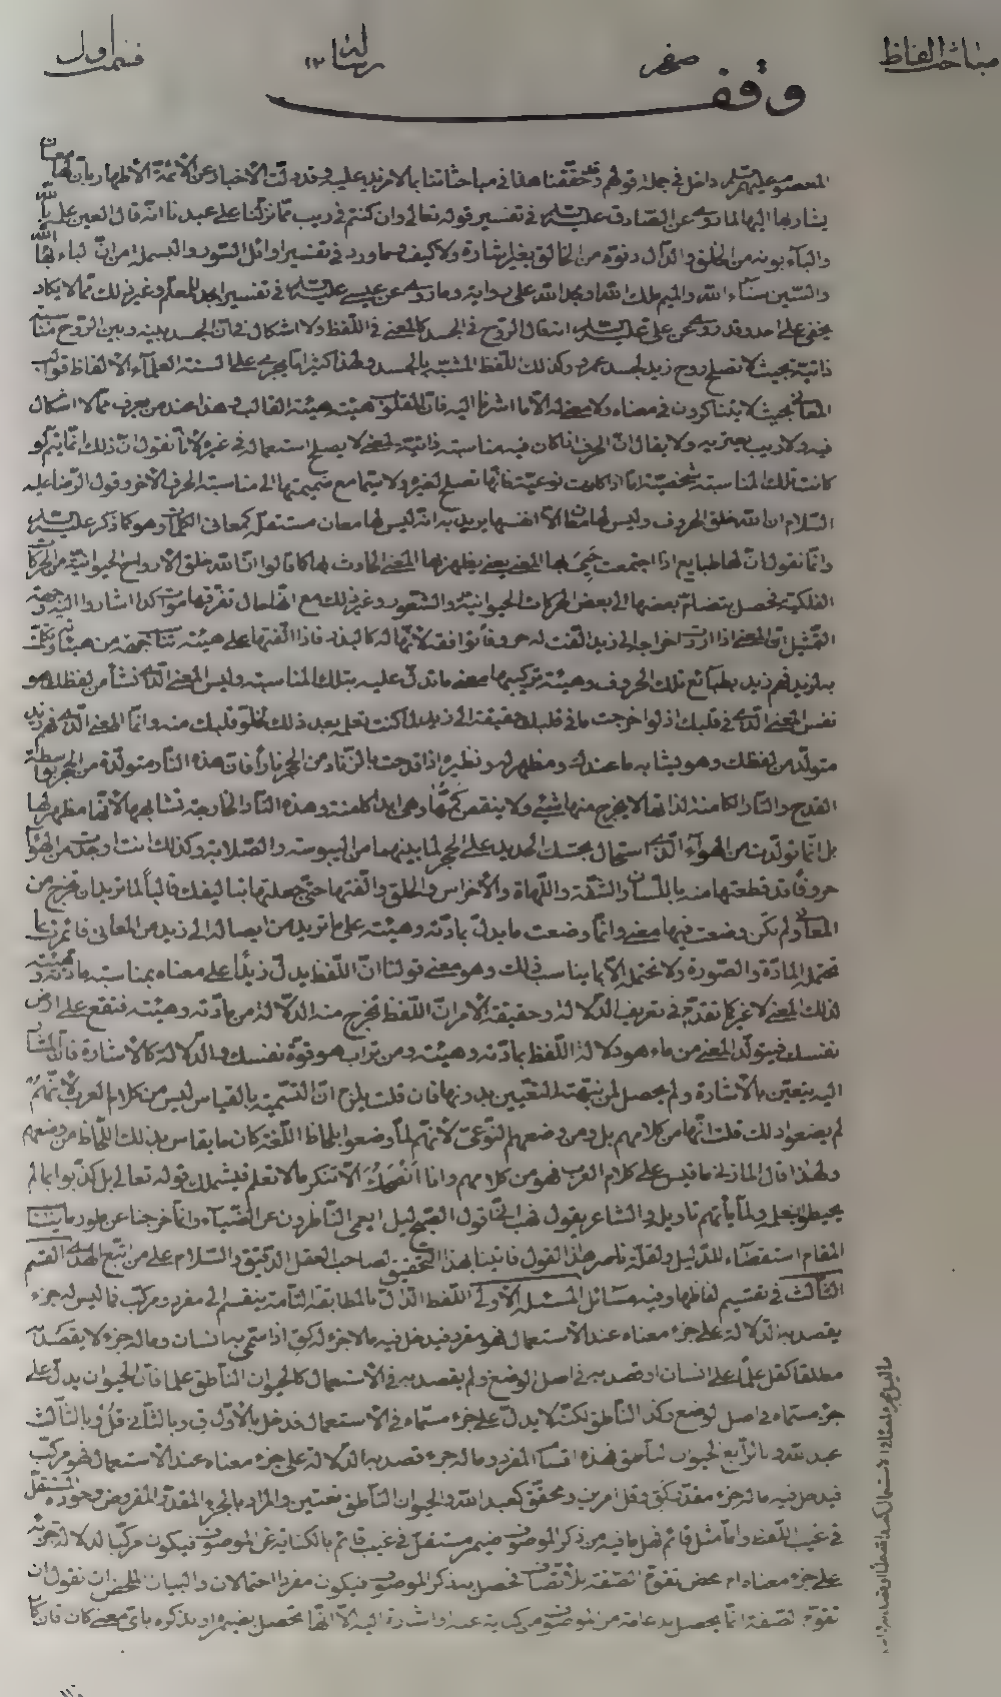 مباحث الفاظ
صغر
رسالة ١٣
قسمت اول
وقف
المعصوم عليهم السلم داخل في جملة قولهم وقد حققنا هذا في مباحثاتنا بما لا مزيد عليه وقد دلت الأخبار عن الأئمة الأطهار بأن لها معان
يشار بها اليها لما روي عن الصادق عليه السلم في تفسير قوله تعالى وان كنتم في ريب مما نزلنا على عبدنا انه قال العين علمه بالله
والباء بونه من الخلق والدال دنوه من الخالق بغير اشارة ولا كيف وما ورد في تفسير اوائل السور والبسملة من ان الباء بهاء الله
والسين سناء الله والميم ملك الله او مجد الله على رواية وما روي عن عيسى عليه السلم في تفسير ابجد للمعلم وغير ذلك مما لا يكاد
يخفى على احد وقد روي عن علي عليه السلم انه قال الروح في الجسد كالمعنى في اللفظ ولا اشكال في ان الجسد بينه وبين الروح مناسبة
ذاتية بحيث لا تصلح روح زيد لجسد عمرو وكذلك اللفظ المشبه بالجسد ولهذا كثيرا ما يجري على السنة العلماء الألفاظ قوالب
المعاني بحيث لا يتناكرون في معناه ولا معنى له الا ما اشرنا اليه فان المقلوب هيئته هيئة القالب وهذا عند من يعرف مما لا اشكال
فيه ولا ريب يعتريه ولا يقال ان الحرف اذا كان فيه مناسبة ذاتية لمعنى لا يصلح استعماله في غيره لأنا نقول ان ذلك انما يتم لو
كانت تلك المناسبة شخصية اما اذا كانت نوعية فانها تصلح لغيره ولا سيما مع ضميمتها الى مناسبة الحرف الآخر وقول الرضا عليه
السلام ان الله خلق الحروف وليس لها معان الا انفسها يريد به انه ليس لها معان مستقلة كمعاني الكلمات وهو كما ذكر عليه السلم
وانما نقول ان لها طبايع اذا اجتمعت بها المعنى يعني يظهر بها المعنى الحادث لها كما قالوا ان الله خلق الأرواح الحيوانية من الحركات
الفلكية تحصل بتضام بعضها الى بعض الحركات الحيوانية والشعور وغير ذلك مع انها حال تفرقها موات كما اشاروا اليه وجهة
التمثيل ان المعنى اذا اردت اخراجه الى زيد الفت له حروفا توافقه لأنها له كالبدن فاذا الفتها على هيئة تناسبه من هيئاته تكلمت
به لزيد فهم زيد بطبائع تلك الحروف وهيئة تركيبها معنى ما تدل عليه بتلك المناسبة وليس المعنى الذي نشأ من لفظك هو
نفس المعنى الذي في قلبك اذ لو اخرجت ما في قلبك حقيقة الى زيد لما كنت تعلمه بعد ذلك لخلو قلبك منه وانما المعنى الذي فهم زيد
متولد من لفظك وهو يشابه ما عندك ومظهر له ونظيره اذا قدحت بالزناد من الحجر نارا فان هذه النار متولدة من الحجر بواسطة
القدح والنار الكامنة لذاتها لا يخرج منها شيء ولا ينقص كمها وهي ابدا كامنة وهذه النار الخارجة تشابهها لأنها مظهر لها
بل انما تولدت من الهواء الذي استحال بحتك الحديد على الحجر لما بينهما من اليبوسة والصلابة وكذلك انت اوجدت من الهواء
حروفا قد قطعتها منه باللسان والشفة واللهاة والأضراس والحلق والفتها حتى جعلتها بتاليفك قالبا لما تريد ان تخرج من
المعاني ولم تكن وضعت فيها معنى وانما وضعت ما يدل بمادته وهيئته على ما تريد من ايصاله الى زيد من المعاني
تحتمله المادة والصورة ولا تحتمله الا بما يناسب ذلك وهو معنى قولنا ان اللفظ يدل بذاته على معناه بمناسبة مادته وهيئته
لذلك المعنى لا غير كما تقدم في تعريف الدلالة وحقيقة الأمر ان اللفظ تخرج منه الدلالة من مادته وهيئته فتقع على ارض
نفسك فيتولد المعنى من ماء هو دلالة اللفظ بمادته وهيئته ومن تراب هو قوة نفسك والدلالة كالاشارة فان المشار
اليه يتعين بالاشارة ولم يحصل لمن نبهته التعيين بدونها فان قلت يلزم ان التسمية بالقياس ليس من كلام العرب لأنهم
لم يضعوا ذلك قلت انها من كلامهم بل ومن وضعهم النوعي لأنهم لما وضعوا بلحاظ اللغة كان ما يقاس بذلك اللحاظ من وضعهم
ولهذا قال المازني ما قيس على كلام العرب فهو من كلامهم وانا الا تنكر ما لا تعلم فيشملك قوله تعالى بل كذبوا بما لم
يحيطوا بعلمه ولما يأتهم تأويله والشاعر يقول فهب اني اقول الصبح ليل ايعمى الناظرون عن الضياء وانما خرجنا عن طور ما يتنا
المقام استقصاء للدليل ولقلة ناصر هذا القول فاتينا بهذا التحقيق لصاحب العقل الدقيق والسلام على من اتبع الهدى القسم
الثالث في تقسيم الفاظها وفيه مسائل المسئلة الأولى اللفظ الدال بالمطابقة التامة ينقسم الى مفرد ومركب فما ليس له جزء
يقصد به الدلالة على جزء معناه عند الاستعمال فهو مفرد فيدخل فيه ما لا جزء له كق اذا سمي به انسان وما له جزء لا يقصد به
مطلقا كقل علما على انسان او قصد به في اصل الوضع ولم يقصد به في الاستعمال كالحيوان الناطق علما فان الحيوان يدل على
جزء مسماه في اصل الوضع وكذا الناطق لكنه لا يدل على جزء مسماه في الاستعمال فدخل بالأول ق وبالثاني قل وبالثالث
عبد الله وبالرابع الحيوان الناطق فهذه اقسام المفرد وما له جزء قصد به الدلالة على جزء معناه عند الاستعمال فهو مركب
فيدخل فيه ما له جزء مقدر كق وقل امرين ومحقق كعبد الله والحيوان الناطق نعتين والمراد بالجزء المقدر المفروض وجوده المستقل
في غيب اللفظ واما مثل قائم فهل ما فيه من ذكر الموصوف ضمير مستقل في غيب قائم بالكناية عن الموصوف فيكون مركبا لدلالة جزئه
على جزء معناه ام محض تقوم الصفة بلا اتصاف تحصل به ذكر الموصوف فيكون مفردا احتمالان والبيان الملخص ان نقول ان
تقوم الصفة انما يحصل بدعامة من الموصوف مركبة عنه او اشارة اليه الا انها تحصل بضميره او بذكره باي معنى كان فان كان